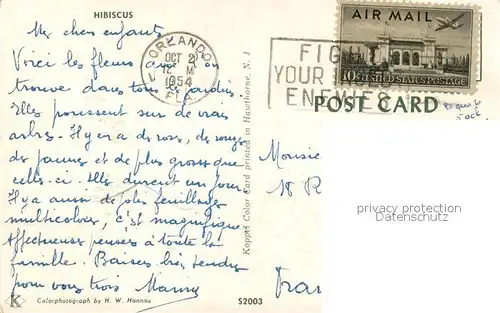 HIBISCUS
Mes chers enfants
Voici les fleurs que l'on
trouve dans tous les jardins.
Elles poussent sur de vrais
arbres. Il y en a de roses, de rouges
de jaunes et de plus grosses que
celles-ci. Elles durent un jour
Il y a aussi de jolis feuillages
multicolores, c'est magnifique
Affectueuses pensées à toute la
famille. Baisers très tendres
pour vous trois Mamy
Colorphotograph by H. W. Hannau
52003
Koppel Color Card printed in Hawthorne, N. J.
ORLANDO
OCT 2
12 M
1954
FLA.
FIGHT
YOUR
ENEMIES
AIR MAIL
10¢ UNITED STATES POSTAGE
POST CARD
Monsie
18 R
Fran
privacy protection
Datenschutz
K